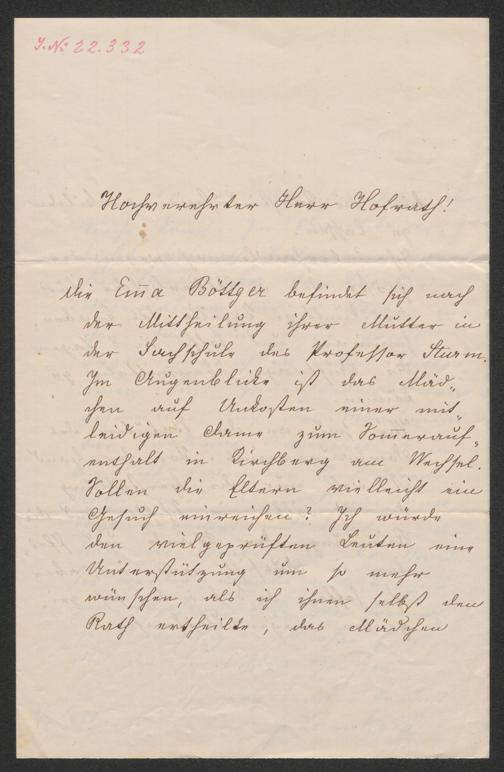 J.No 22.332
Hochverehrter Herr Hofrath!
Die Em̄a Böttger befindet sich nach
der Mittheilung ihrer Mutter in
der Fachschule des Professor Sturm.
Im Augenblicke ist das Mäd„
chen auf Unkosten einer mit„
leidigen Dame zum Som̄erauf„
enthalt in Kirchberg am Wechsel.
Sollen die Eltern vielleicht ein
Gesuch einreichen? Ich würde
den vielgeprüften Leuten eine
Unterstützung um so mehr
wünschen, als ich ihnen selbst den
Rath ertheilte, das Mädchen